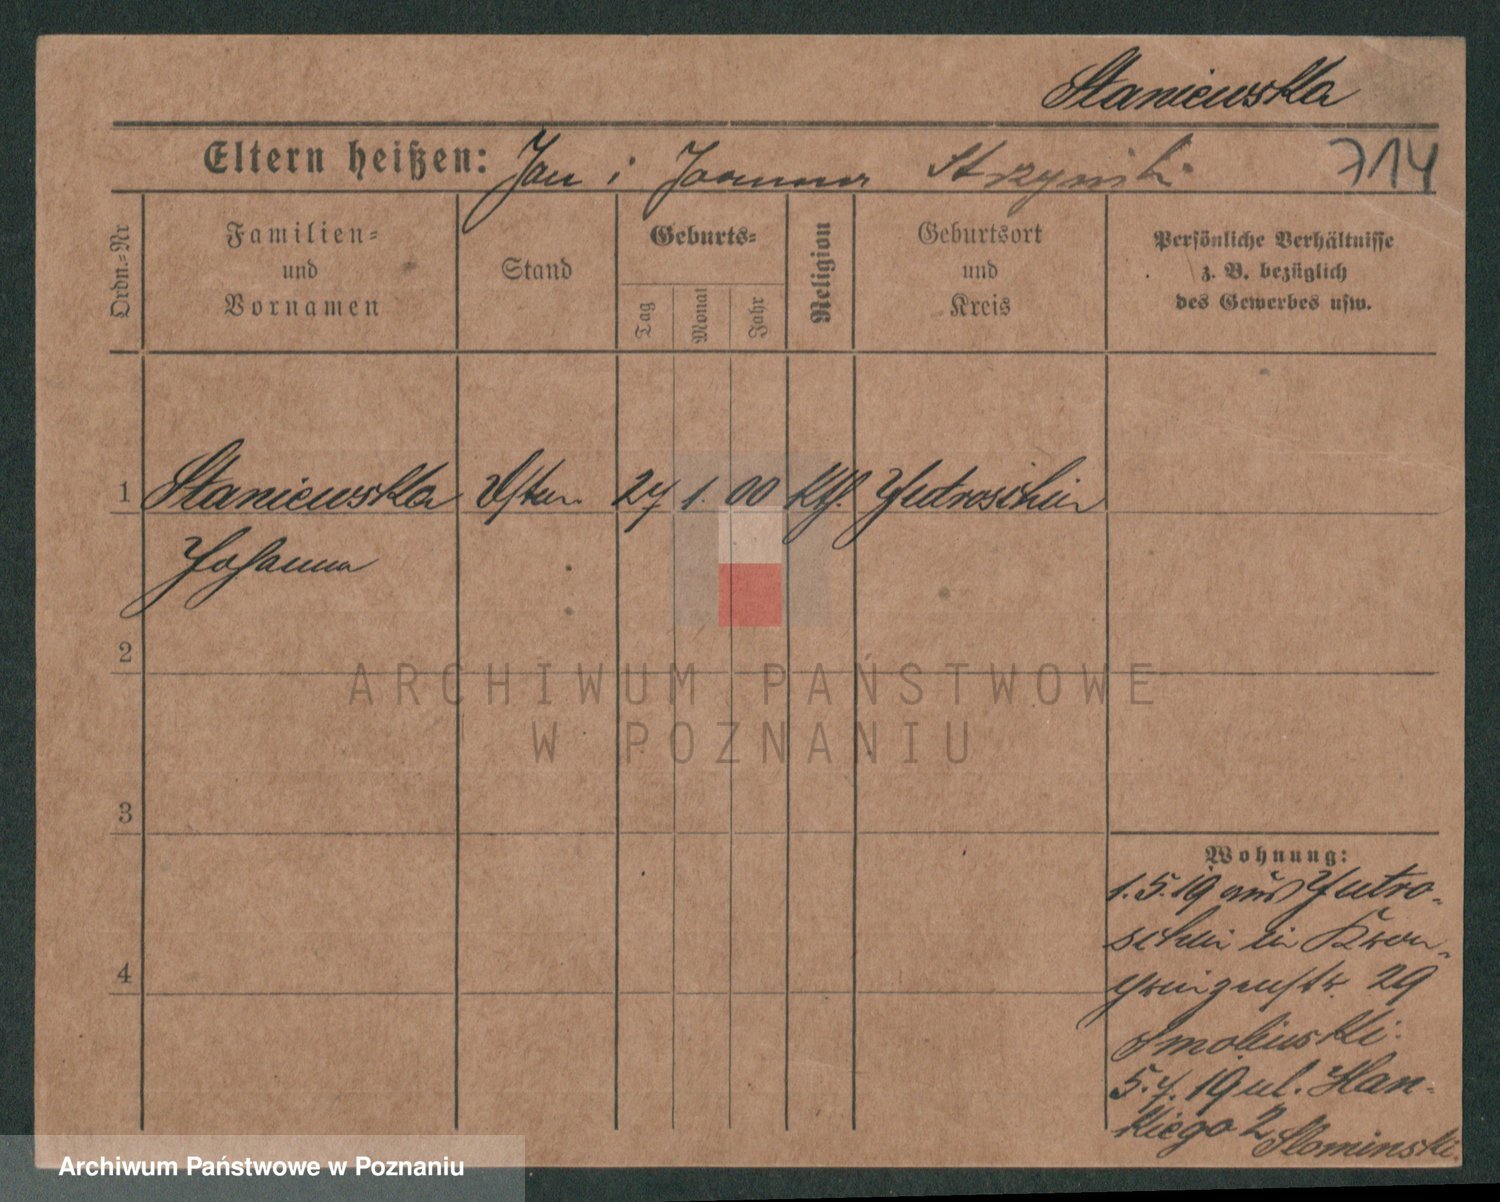 Staniewska
Eltern heißen: Jan i Joanna
714
Ordn.-Nr
Familien=
und
Vornamen
Stand
Geburts=
Tag
Monat
Jahr
Religion
Geburtsort
und
Kreis
Persönliche Verhältnisse
z. B. bezüglich
des Gewerbes usw.
1 Staniewska 27 1. 00 Kth. Jutroschin
Johanna
2
3
4
Wohnung:
1.5.19 aus Jutro-
schin in Kron-
prinzenstr. 29
Smolinski.
5.7.19 ul. Han-
kiego 2 Slominski.
ARCHIWUM PAŃSTWOWE
W POZNANIU
Archiwum Państwowe w Poznaniu